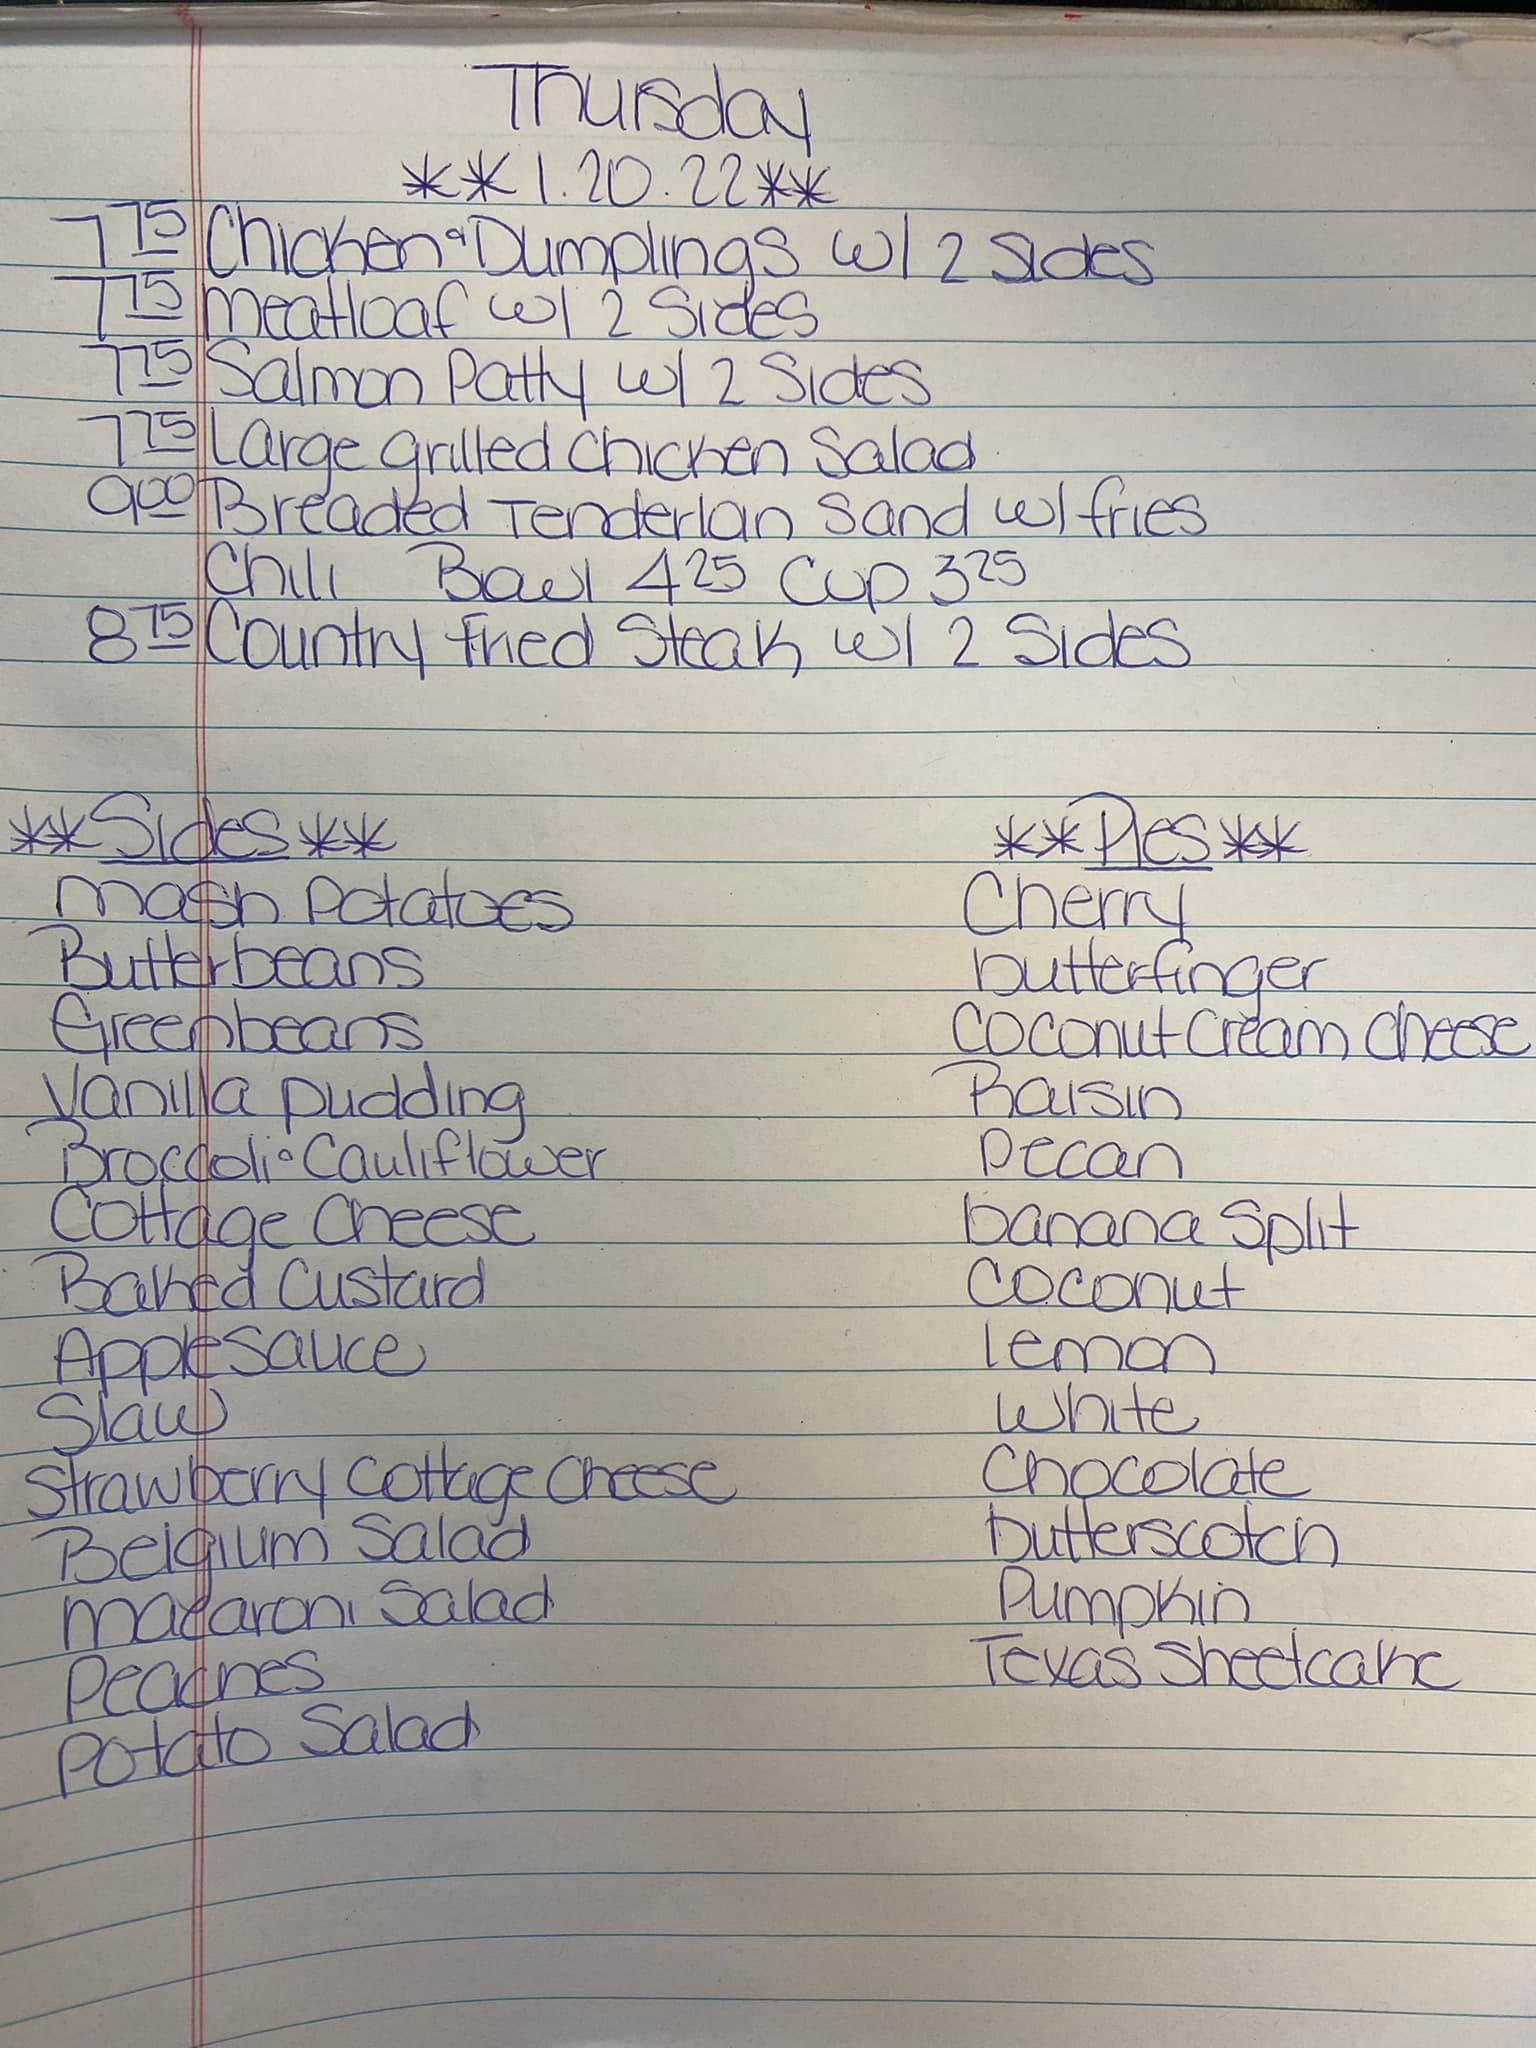 Thursday
**1.20.22**
7 75 Chicken & Dumplings w/ 2 Sides
7 75 Meatloaf w/ 2 Sides
7 75 Salmon Patty w/ 2 Sides
7 75 Large grilled Chicken Salad
9 00 Breaded Tenderlan Sand w/ fries
Chili Bowl 4 25 Cup 3 25
8 75 Country Fried Steak w/ 2 Sides
**Sides**
Mash Potatoes
Butterbeans
Greenbeans
Vanilla pudding
Broccoli & Cauliflower
Cottage Cheese
Baked Custard
Applesauce
Slaw
Strawberry Cottage Cheese
Belgium Salad
Macaroni Salad
Peaches
Potato Salad
**Pies**
Cherry
butterfinger
Coconut Cream Cheese
Raisin
Pecan
banana Split
Coconut
lemon
White
Chocolate
butterscotch
Pumpkin
Texas Sheetcake